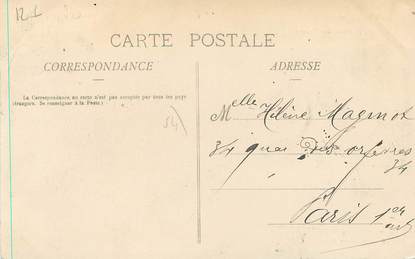 CARTE POSTALE
CORRESPONDANCE
ADRESSE
La Correspondance au recto n'est pas acceptée par tous les pays
étrangers. (Se renseigner à la Poste.)
Melle Hélène Maginot
34 quai des orfèvres
34
Paris 1er